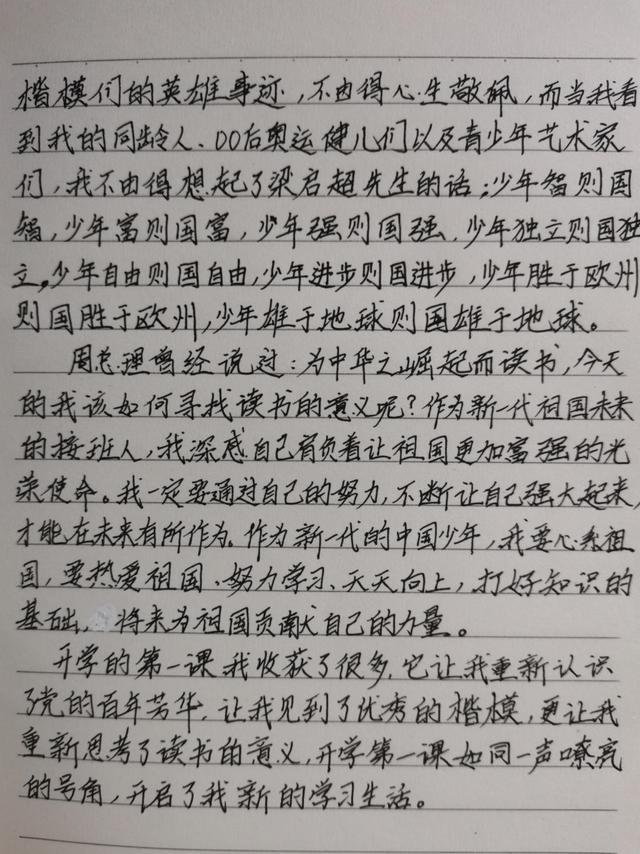 楷模们的英雄事迹,不由得心生敬佩,而当我看
到我的同龄人、00后奥运健儿们以及青少年艺术家
们,我不由得想起了梁启超先生的话:少年智则国
智,少年富则国富,少年强则国强,少年独立则国独
立,少年自由则国自由,少年进步则国进步,少年胜于欧州
则国胜于欧州,少年雄于地球则国雄于地球。
周总理曾经说过:为中华之崛起而读书,今天
的我该如何寻找读书的意义呢?作为新一代祖国未来
的接班人,我深感自己肩负着让祖国更加富强的光
荣使命。我一定要通过自己的努力,不断让自己强大起来,
才能在未来有所作为。作为新一代的中国少年,我要心系祖
国,要热爱祖国、努力学习、天天向上,打好知识的
基础,将来为祖国贡献自己的力量。
开学的第一课我收获了很多,它让我重新认识
了党的百年芳华,让我见到了优秀的楷模,更让我
重新思考了读书的意义,开学第一课如同一声嘹亮
的号角,开启了我新的学习生活。